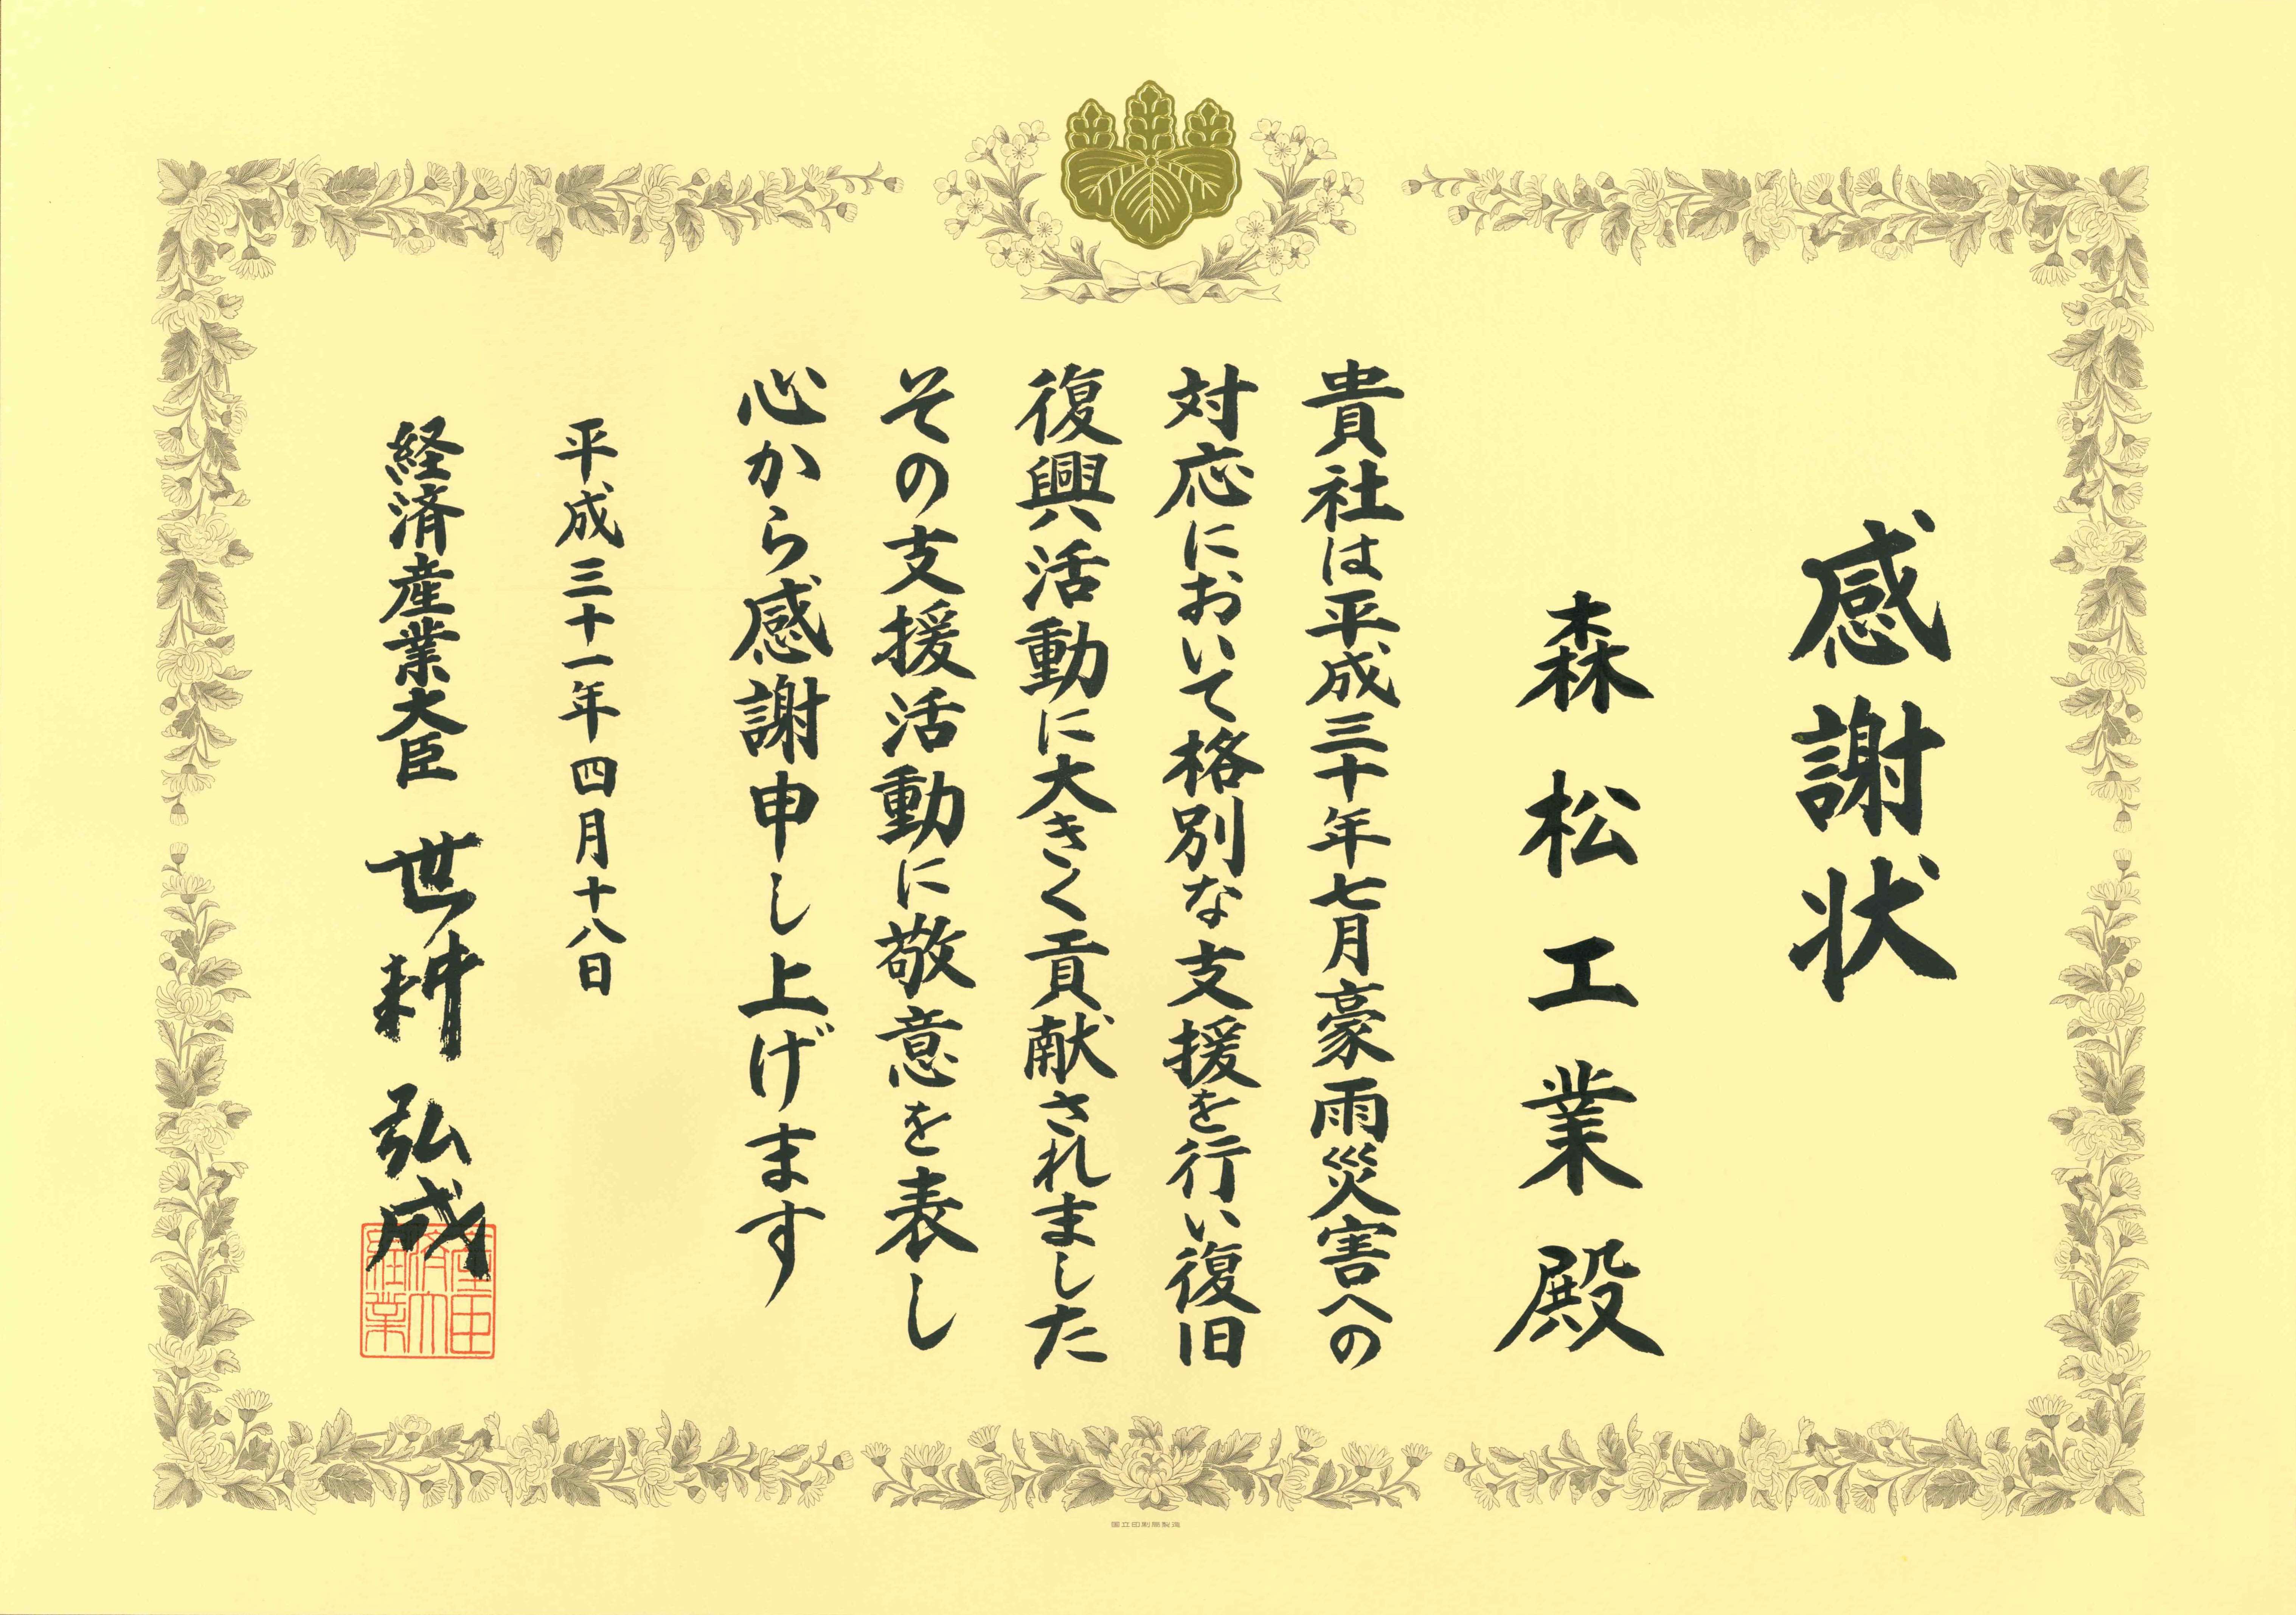 感謝状
森松工業殿
貴社は平成三十年七月豪雨災害への
対応において格別な支援を行い復旧
復興活動に大きく貢献されました
その支援活動に敬意を表し
心から感謝申し上げます
平成三十一年四月十八日
経済産業大臣 世耕弘成
国立印刷局製造